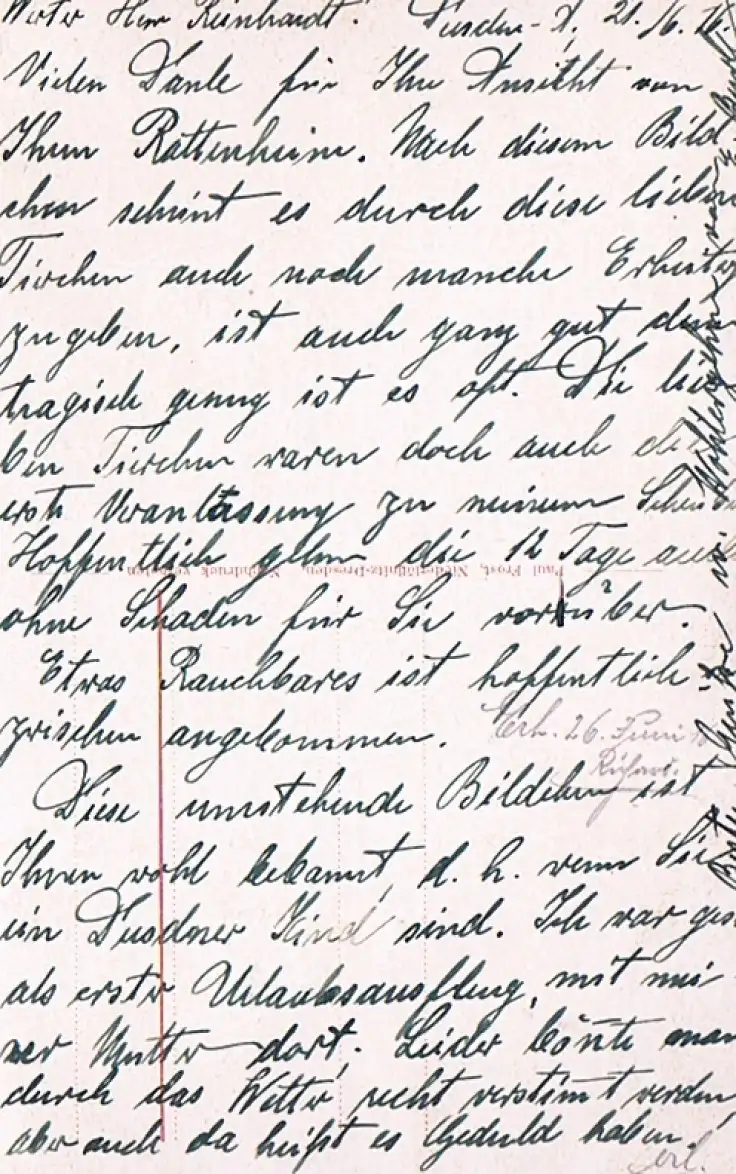 Werter Herr Reinhardt! Dresden-A, 21./6. 16.
Vielen Danke für Ihre Ansicht von
Ihrem Rattenheim. Nach diesem Bild-
chen scheint es durch diese lieben
Tierchen auch noch manche
zugeben, ist auch ganz gut denn
tragisch genug ist es oft. Die lie-
ben Tierchen waren doch auch die
erste Veranlassung zu meinem
Hoffentlich gehen die 12 Tage auch
Paul Frost, Niederlößnitz-Dresden. Nachdruck verboten
ohne Schaden für Sie vorüber.
Etwas Rauchbares ist hoffentlich
zwischen angekommen.
Erh. 26. Juni
Diese umstehende Bildchen ist
Ihnen wohl bekannt, d. h. wenn Sie
ein Dresdner Kind sind. Ich war
als erster Urlaubsausflug, mit mei-
ner Mutter dort. Leider kon̄te man
durch das Wetter recht verstim̄t werden
aber auch da heißt es Geduld haben!